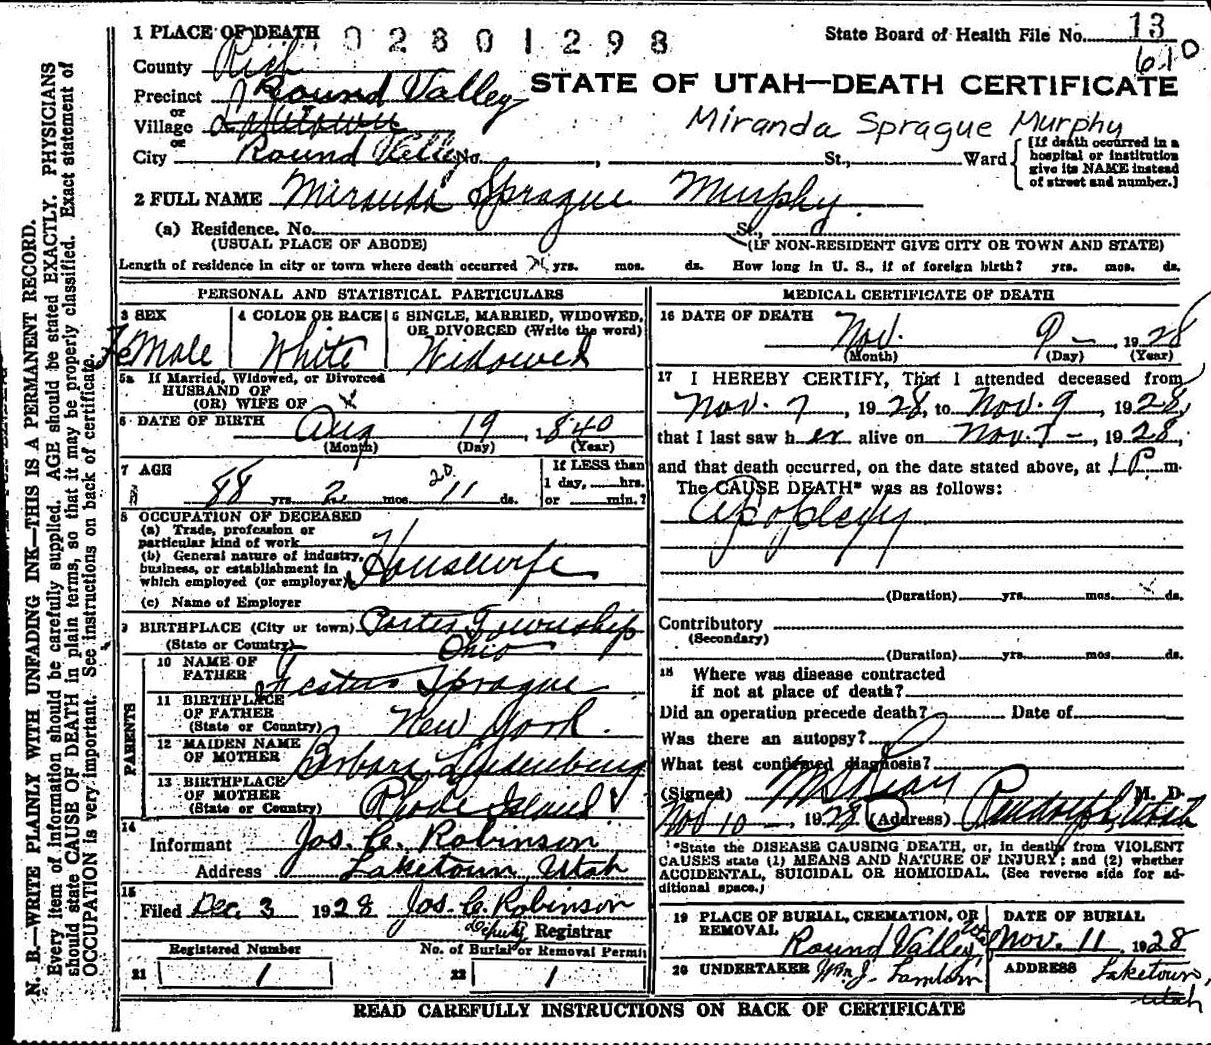 1 PLACE OF DEATH 02801298 State Board of Health File No. 13
610
County Rich
STATE OF UTAH—DEATH CERTIFICATE
Precinct Round Valley
or
Village Laketown
Miranda Sprague Murphy
or
City Round Valley No. , St., Ward [If death occurred in a hospital or institution give its NAME instead of street and number.]
2 FULL NAME Miranda Sprague Murphy.
(a) Residence. No. St.,
(USUAL PLACE OF ABODE) (IF NON-RESIDENT GIVE CITY OR TOWN AND STATE)
Length of residence in city or town where death occurred yrs. mos. ds. How long in U. S., if of foreign birth? yrs. mos. ds.
PERSONAL AND STATISTICAL PARTICULARS
3 SEX
4 COLOR OR RACE
5 SINGLE, MARRIED, WIDOWED, OR DIVORCED (Write the word)
FeMale White Widowed
5a If Married, Widowed, or Divorced
HUSBAND OF
(OR) WIFE OF
6 DATE OF BIRTH Aug 19, 1840
(Month) (Day) (Year)
7 AGE
88 yrs. 2 mos. 20 11 ds.
If LESS than
1 day, hrs.
or min.?
8 OCCUPATION OF DECEASED
(a) Trade, profession or
particular kind of work
(b) General nature of industry,
business, or establishment in
which employed (or employer)
Housewife
(c) Name of Employer
9 BIRTHPLACE (City or town) Porter Township
(State or Country) Ohio
PARENTS
10 NAME OF
FATHER Sprague
11 BIRTHPLACE
OF FATHER
(State or Country) New York.
12 MAIDEN NAME
OF MOTHER Barbara
13 BIRTHPLACE
OF MOTHER
(State or Country) Rhode Island
14
Informant Jos. C. Robinson
Address Laketown, Utah
15
Filed Dec. 3 1928 Jos. C. Robinson
Deputy Registrar
Registered Number No. of Burial or Removal Permit
21 1 22 1
MEDICAL CERTIFICATE OF DEATH
16 DATE OF DEATH
Nov. 9 – , 1928
(Month) (Day) (Year)
17 I HEREBY CERTIFY, That I attended deceased from
Nov. 7, 1928, to Nov. 9, 1928,
that I last saw her alive on Nov. 7 –, 1928,
and that death occurred, on the date stated above, at 1 P.m.
The CAUSE DEATH* was as follows:
Apoplexy
(Duration) yrs. mos. ds.
Contributory
(Secondary)
(Duration) yrs. mos. ds.
18 Where was disease contracted
if not at place of death?
Did an operation precede death? Date of
Was there an autopsy?
What test confirmed diagnosis?
(Signed) M. D.
Nov 10 –, 1928 (Address) Randolph, Utah
*State the DISEASE CAUSING DEATH, or, in deaths from VIOLENT
CAUSES state (1) MEANS AND NATURE OF INJURY; and (2) whether
ACCIDENTAL, SUICIDAL OR HOMICIDAL. (See reverse side for ad-
ditional space.)
19 PLACE OF BURIAL, CREMATION, OR
REMOVAL
Round Valley, Utah
DATE OF BURIAL
Nov. 11 1928
20 UNDERTAKER Wm. J. Lamborn
ADDRESS Laketown, Utah
READ CAREFULLY INSTRUCTIONS ON BACK OF CERTIFICATE
N. B.—WRITE PLAINLY WITH UNFADING INK—THIS IS A PERMANENT RECORD.
Every item of information should be carefully supplied. AGE should be stated EXACTLY. PHYSICIANS
should state CAUSE OF DEATH in plain terms, so that it may be properly classified. Exact statement of
OCCUPATION is very important. See instructions on back of certificate.